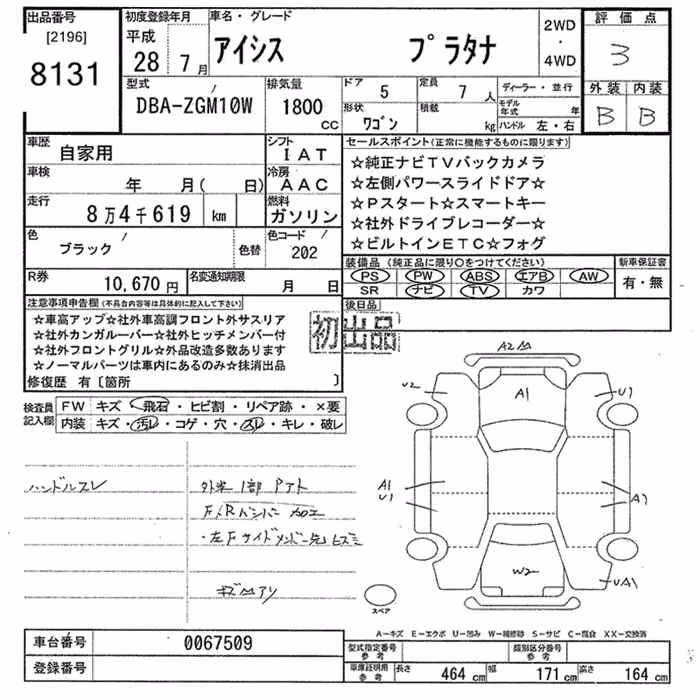 出品番号 初度登録年月 車名・グレード 2WD 評価点
[2196] 平成 アイシス プラタナ ・ 3
8131 28 7月 4WD
型式 排気量 ドア 5 定員 7人 ディーラー・並行 外装 内装
DBA-ZGM10W 1800 cc 形状 ワゴン 積載 kg モデル年式 年 B B
ハンドル 左・右
車歴 自家用 シフト IAT セールスポイント(正常に機能するものに限ります)
車検 年 月( 日) 冷房 AAC ☆純正ナビTVバックカメラ
走行 8万4千619 km 燃料 ガソリン ☆左側パワースライドドア☆
☆Pスタート☆スマートキー
色 ブラック 色替 色コード 202 ☆社外ドライブレコーダー☆
☆ビルトインETC☆フォグ
R券 10,670円 名変通知期限 月 日 装備品(純正品に限り○をつけてください) 新車保証書
PS PW ABS エアB AW 有・無
SR ナビ TV カワ
注意事項申告欄(不具合内容等は具体的に記入して下さい) 後日品
☆車高アップ☆社外車高調フロント外サスリア 初出品
☆社外カンガルーバー☆社外ヒッチメンバー付
☆社外フロントグリル☆外品改造多数あります
☆ノーマルパーツは車内にあるのみ☆抹消出品
修復歴 有[箇所 ]
検査員記入欄 FW キズ・飛石・ヒビ割・リペア跡・×要
内装 キズ・汚レ・コゲ・穴・スレ・キレ・破レ
ハンドルスレ 外装1部Pアト
F/Rバンパー加工
・左Fサイドメンバー先ヒズミ
A2
U2 A1 U1
A1
U1 A1
W2
UA1
スペア
A−キズ E−エクボ U−凹み W−補修跡 S−サビ C−腐食 XX−交換済
車台番号 0067509 型式指定番号 参考 類別区分番号 参考
登録番号 車庫証明用 参考 長さ 464 cm 幅 171 cm 高さ 164 cm